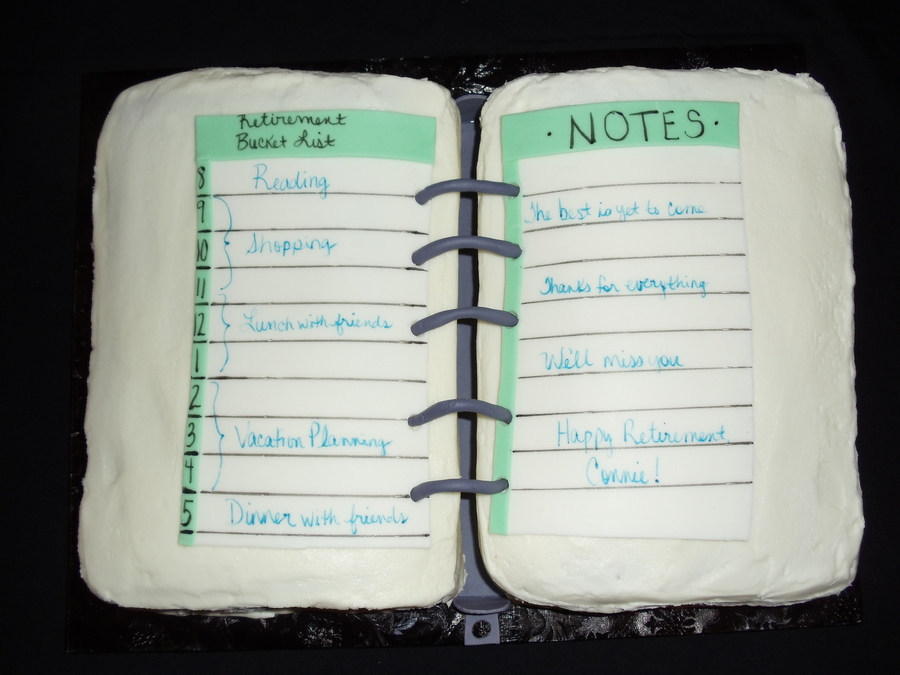 Retirement
Bucket List
8 Reading
9
10 Shopping
11
12 Lunch with friends
1
2
3 Vacation Planning
4
5 Dinner with friends
· NOTES ·
The best is yet to come
Thanks for everything
We'll miss you
Happy Retirement
Connie!